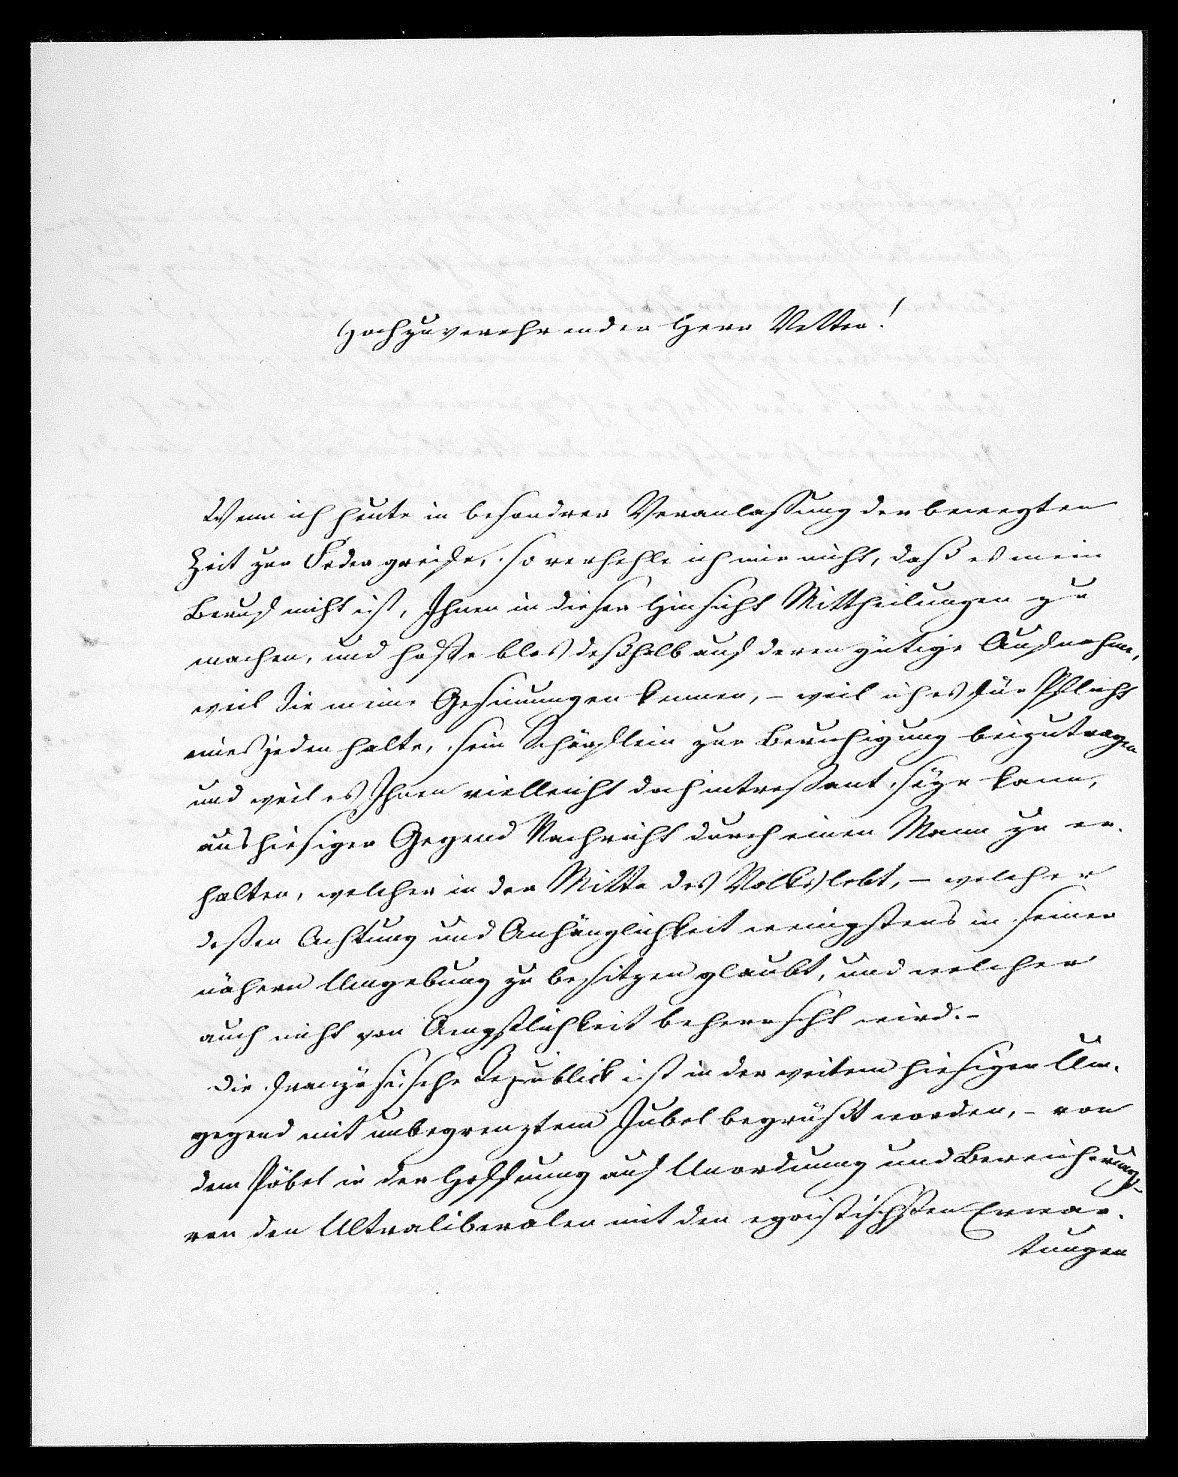 Hochzuverehrender Herr Vetter!
Wenn ich heute in besondrer Veranlassung der bewegten
Zeit zur Feder greife, so verhehle ich mir nicht, daß es mein
Beruf nicht ist, Ihnen in dieser Hinsicht Mittheilungen zu
machen, und hoffe blos deßhalb auf deren gütige Aufnahme,
weil Sie meine Gesinnungen kennen, – weil ich es für Pflicht
eines jeden halte, sein Schärflein zur Beruhigung beizutragen
und weil es Ihnen vielleicht doch intreßant seyn kann,
aus hiesiger Gegend Nachricht durch einen Mann zu er-
halten, welcher in der Mitte des Volks lebt, – welcher
deßen Achtung und Anhänglichkeit wenigstens in seiner
nähern Umgebung zu besitzen glaubt, und welcher
auch nicht von Ängstlichkeit beherrscht wird. –
Die französische Republick ist in der weitern hiesigen Um-
gegend mit unbegrenztem Jubel begrüßt worden, – von
dem Pöbel in der Hoffnung auf Unordnung und Bereicherung,
von den Ultraliberalen mit den egoistischsten Erwar-
tungen